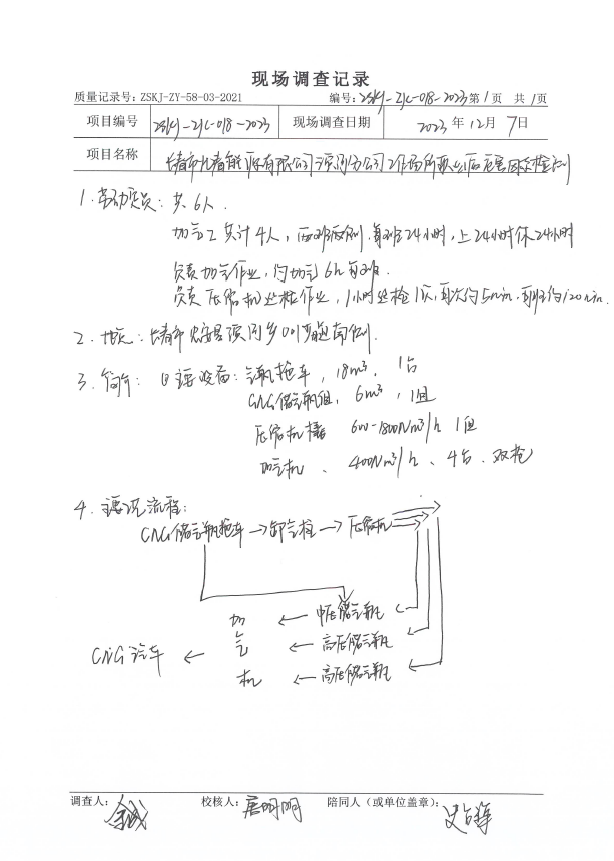 现场调查记录
质量记录号：ZSKJ-ZY-58-03-2021 编号：ZSKJ-ZJC-018-2023 第1页 共1页
项目编号 ZSKJ-ZJC-018-2023 现场调查日期 2023年12月7日
项目名称 能源有限公司 分公司工作场所职业病危害因素检测
1.劳动定员：共6人.
加气工共计4人，两班两倒.每班24小时，上24小时休24小时
负责加气作业，约加气6h每班.
负责压缩机巡检作业，1小时巡检1次，每次约5min，每班约120min.
2.地点：
3.简介：①主要设备：气瓶拖车，18m³，1台
CNG储气瓶组，6m³，1组
压缩机橇 600-1800Nm³/h 1组
加气机、400Nm³/h、4台.双枪
4.主要工艺流程：
CNG储气瓶拖车→卸气柱→压缩机
加 ← 中压储气瓶
气 ← 高压储气瓶
CNG汽车 ←
机 ← 高压储气瓶
调查人： 校核人： 陪同人（或单位盖章）：